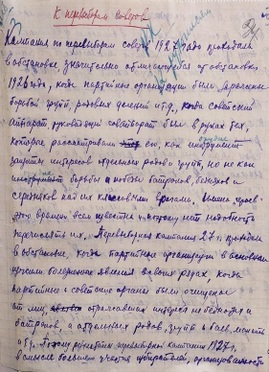 К перевыборам советов
Кампания по перевыборам советов 1927 года проходила
в обстановке значительно отличающейся от обстановки
1926 года, когда партийные организации были
борьбой групп, родовых делений и т.д., когда советский
аппарат, руководящий советский был в руках тех,
которые рассматривали его, как инструмент
защиты интересов отдельных родов и групп, но не как
инструмент борьбы и победы батраков, бедняков и
середняков над их классовыми врагами.
время всем известны и поэтому нет надобности
перечислять их. Перевыборная кампания 27 г. проходила
в обстановке, когда партийные организации в основном
изжили болезненные явления в своих рядах, когда
партийные и советские органы были очищены
от лиц, отражавших интересы не бедноты и
батраков, а отдельных родов, групп и баев,
и т.д. Поэтому результаты перевыборной кампании 1927 г.
в смысле большего участия избирателей, организованность